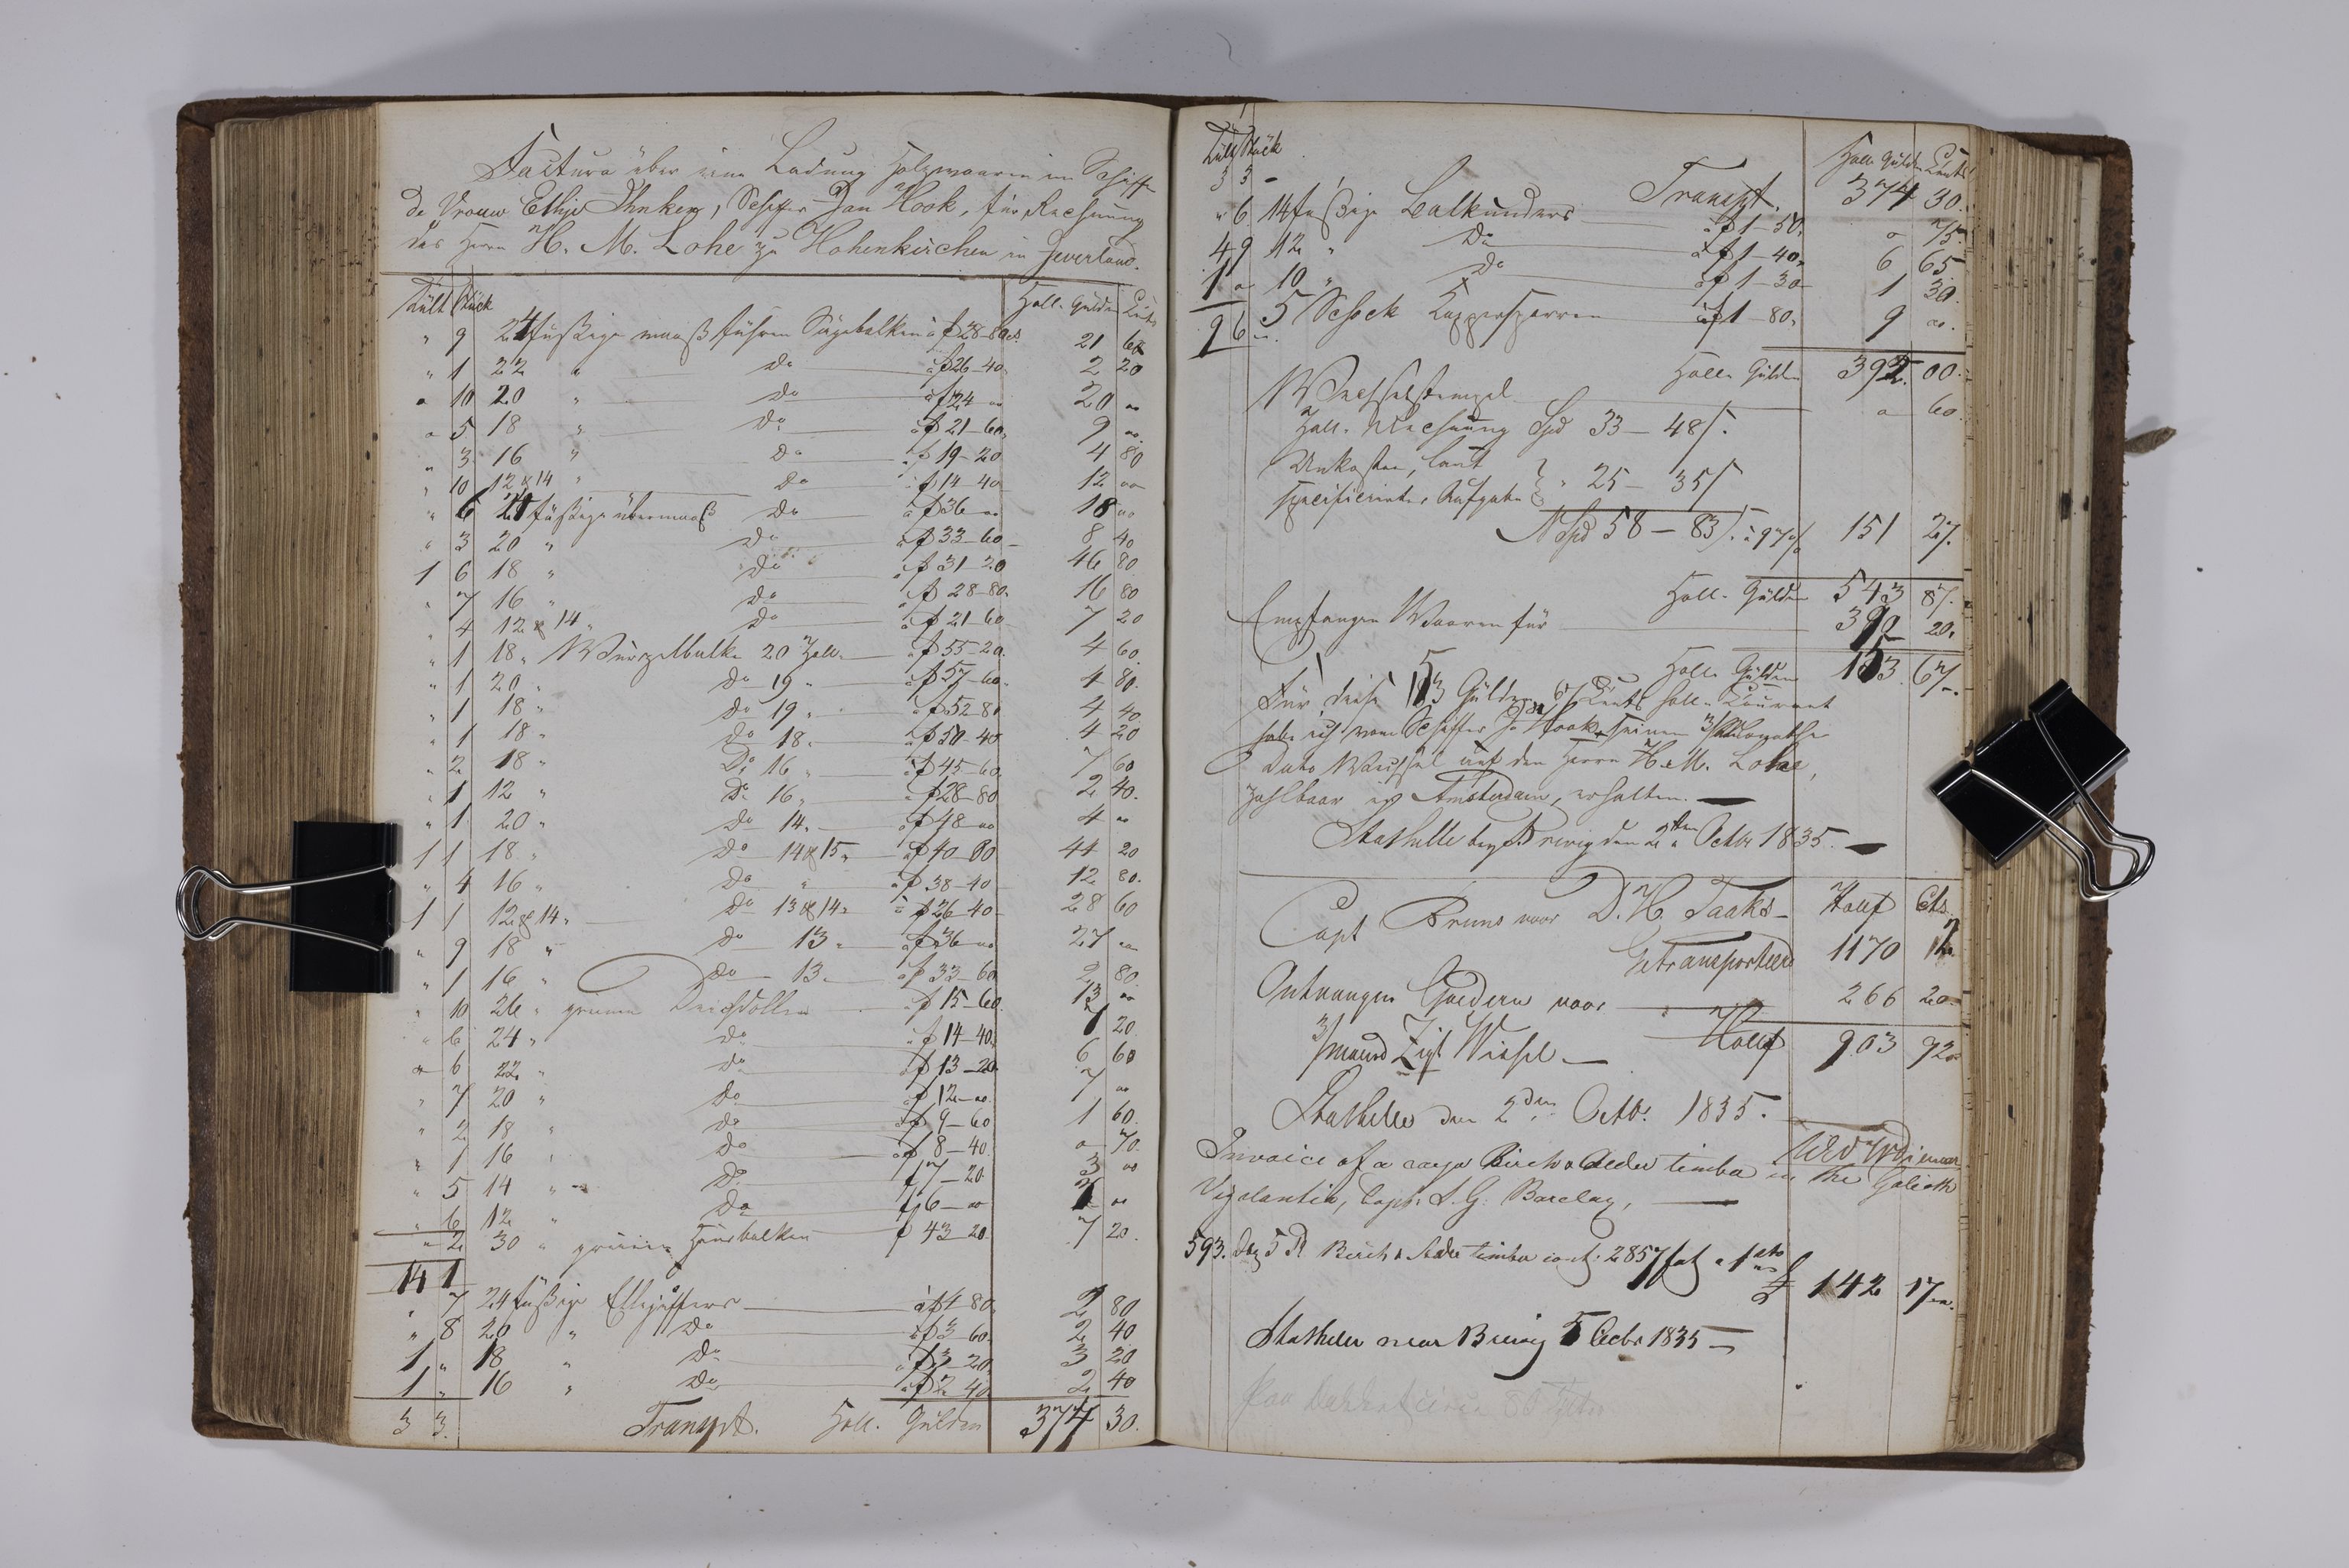 Factura über eine Ladung Holzwaaren im Schiffe
de Vrouw Ethje Ihnken, Schiffer Jan Hook, für Rechnung
des Herrn H. M. Lohe zu Hohenkirchen in Jeverland.
Tült Stück Holl. Gulden Cents
" 9 24 füßige maaß föhren Sägebalken à f 28-80 cs 21 60
" 1 22 " do à f 26-40 2 20
" 10 20 " do à f 24 " 20 "
" 5 18 " do à f 21-60 9 "
" 3 16 " do à f 19-20 4 80
" 10 12 & 14 " do à f 14-40 12 "
" 6 24 füßige übermaaß do à f 36 " 18 "
" 3 20 " do à f 33-60 8 40
1 6 18 " do à f 31-20 46 80
" 7 16 " do à f 28-80 16 80
" 4 12 & 14 " do à f 21-60 7 20
" 1 18 " Würzelbalke 20 Zoll à f 55-20 4 60
" 1 20 " do 19 " à f 57-60 4 80
" 1 18 " do 19 " à f 52-80 4 40
" 1 18 " do 18 " à f 50-40 4 20
" 2 18 " do 16 " à f 45-60 7 60
" 1 12 " do 16 " à f 28-80 2 40
" 1 20 " do 14 " à f 48 " 4 "
1 1 18 " do 14 & 15 " à f 40-80 44 20
" 4 16 " do " à f 38-40 12 80
1 1 12 & 14 " do 13 & 14 " à f 26-40 28 60
" 9 18 " do 13 " à f 36 " 27 "
" 1 16 " do 13 " à f 33-60 2 80
" 10 26 " grenen à f 15-60 13 "
" 6 24 " do à f 14-40 7 20
" 6 22 " do à f 13-20 6 60
" 7 20 " do à f 12 " 7 "
" 2 18 " do à f 9-60 1 60
" 1 16 " do à f 8-40 " 70
" 5 14 " do f 7-20 3 "
" 6 12 " do f 6 " "
" 2 30 " grenen f 43-20 7 20
14 1
" 7 24 füßige Ellejuffers à f 4-80 2 80
" 8 20 " do à f 3-60 2 40
1 " 18 " do à f 3-20 3 20
1 " 16 " do à f 2-40 2 40
3 3 Transpt. Holl. Gulden 374 30
Tült Stück Holl. Gulden Cents
3 3 - Transpt. 374 30
" 6 14 füßige Balkunders à f 1-50 " 75
4 9 12 " do à f 1-40 6 65
1 " 10 " do à f 1-30 1 30
5 Schock Kappersparren à f 1-80 9 "
9 6 "
Holl. Gulden 392 00
Wechselstempel " 60
Zoll-Rechnung Spd 33-48 ß
Unkosten, laut
specificirter Aufgabe " 25-35 ß
N Spd 58-83 ß à 97 151 27
Holl. Gulden 543 87
Empfangen Waaren für 390 20
Holl. Gulden 153 67
Für diese 153 Gulden 67 Cents holl. Courant
habe ich vom Schiffer J. Hook seinen 3/Monathe
Dato Wechsel auf den Herrn H. M. Lohe,
zahlbaar in Amsterdam, erhalten.
Stathelle bey Brevig den 2ten Octbr 1835.
Capt Bruns voor D. H. Taaks Hollf Cts
Getransporteerd 1170 12
Ontvangen Goederen voor 266 20
3/maand Zigt Wissel Hollf 903 92
Stathelle den 2den Octbr 1835.
Invoice of a cargo Birch & Alder timber in the Galioth
Vigilantia, Capt. S. G. Barclay,
593. 5 P. Birch & Alder timber cont: 2857 fot a 1 £ 142 17 "
Stathelle near Brevig 5 Octbr 1835